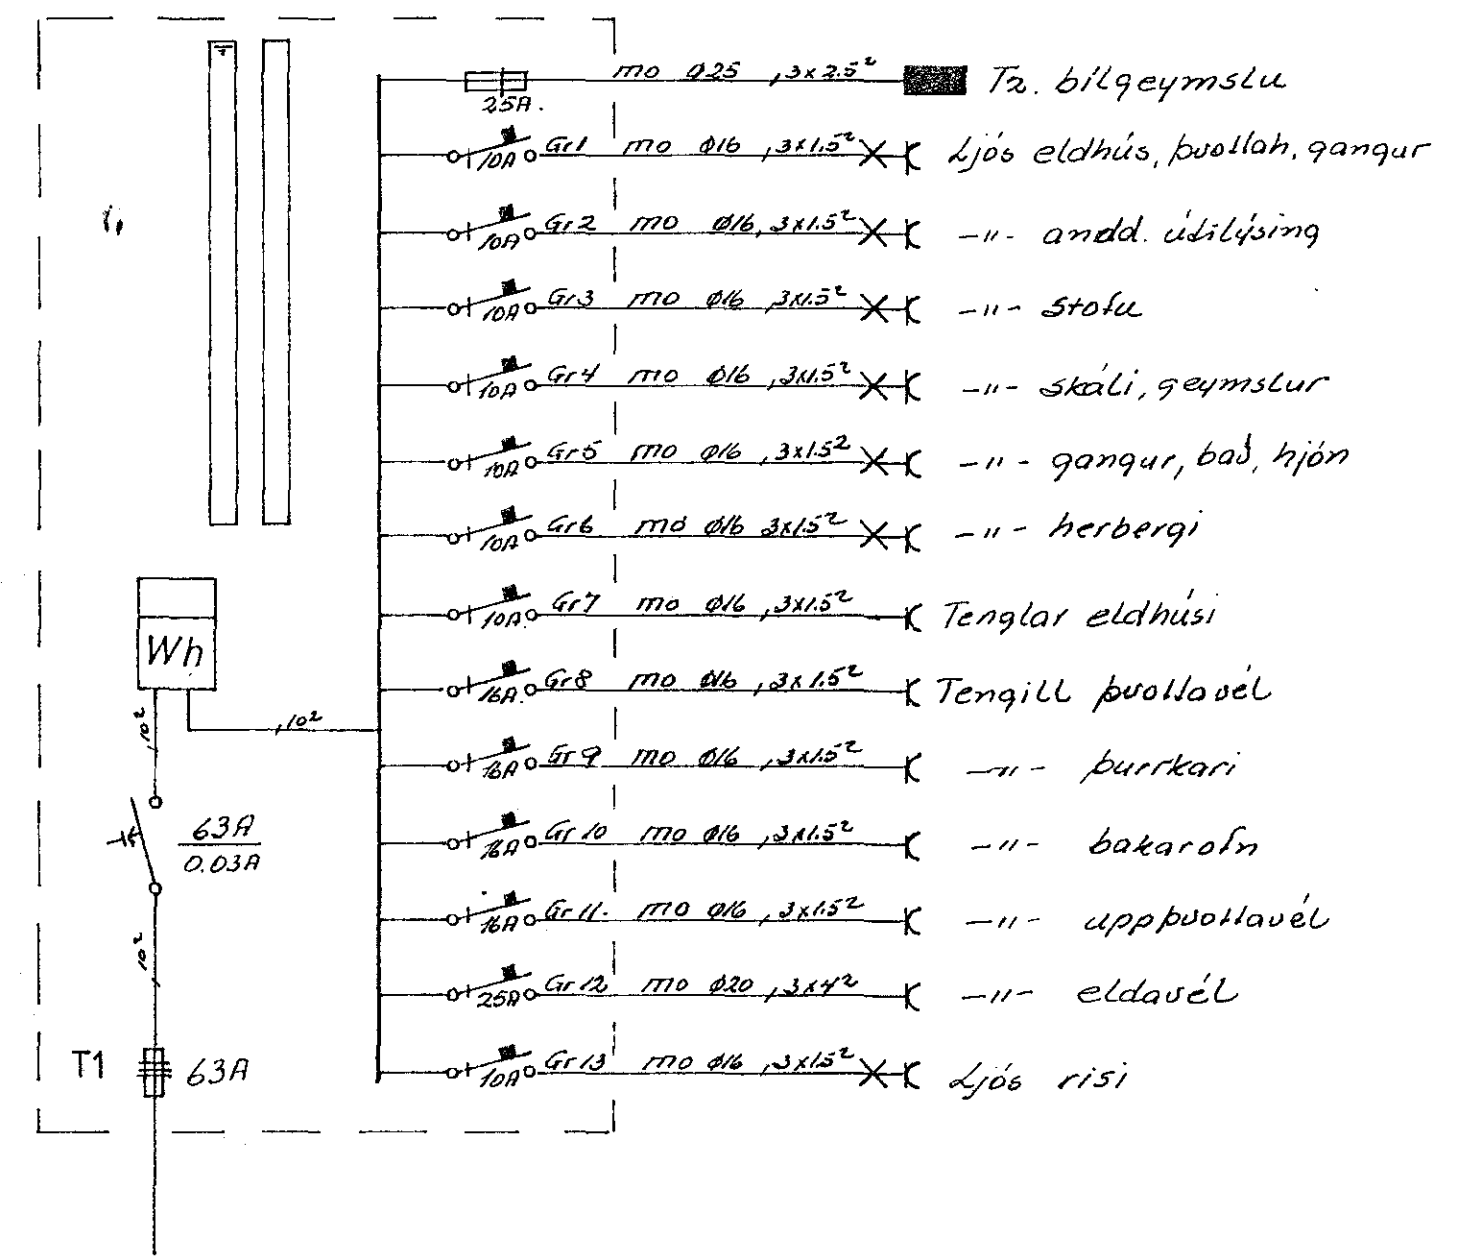 mo ø25 ,3x2.5² T2. bílgeymslu
25A.
Gr1 mo ø16 ,3x1.5² Ljós eldhús, þvottah, gangur
10A
Gr2 mo ø16, 3x1.5² -"- andd. útilýsing
10A
Gr3 mo ø16 ,3x1.5² -"- stofu
10A
Gr4 mo ø16 ,3x1.5² -"- skáli, geymslur
10A
Gr5 mo ø16 ,3x1.5² -"- gangur, bað, hjón
10A
Gr6 mo ø16 3x1.5² -"- herbergi
10A
Gr7 mo ø16 ,3x1.5² Tenglar eldhúsi
10A
Wh
Gr8 mo ø16 ,3x1.5² Tengill þvottavél
16A.
,10²
,10²
Gr9 mo ø16 ,3x1.5² -"- þurrkari
16A
63A
0.03A
Gr10 mo ø16 ,3x1.5² -"- bakarofn
16A
Gr11. mo ø16 ,3x1.5² -"- uppþvottavél
16A
,10²
Gr12 mo ø20 ,3x4² -"- eldavél
25A
T1 63A
Gr13 mo ø16 ,3x1.5² Ljós risi
10A